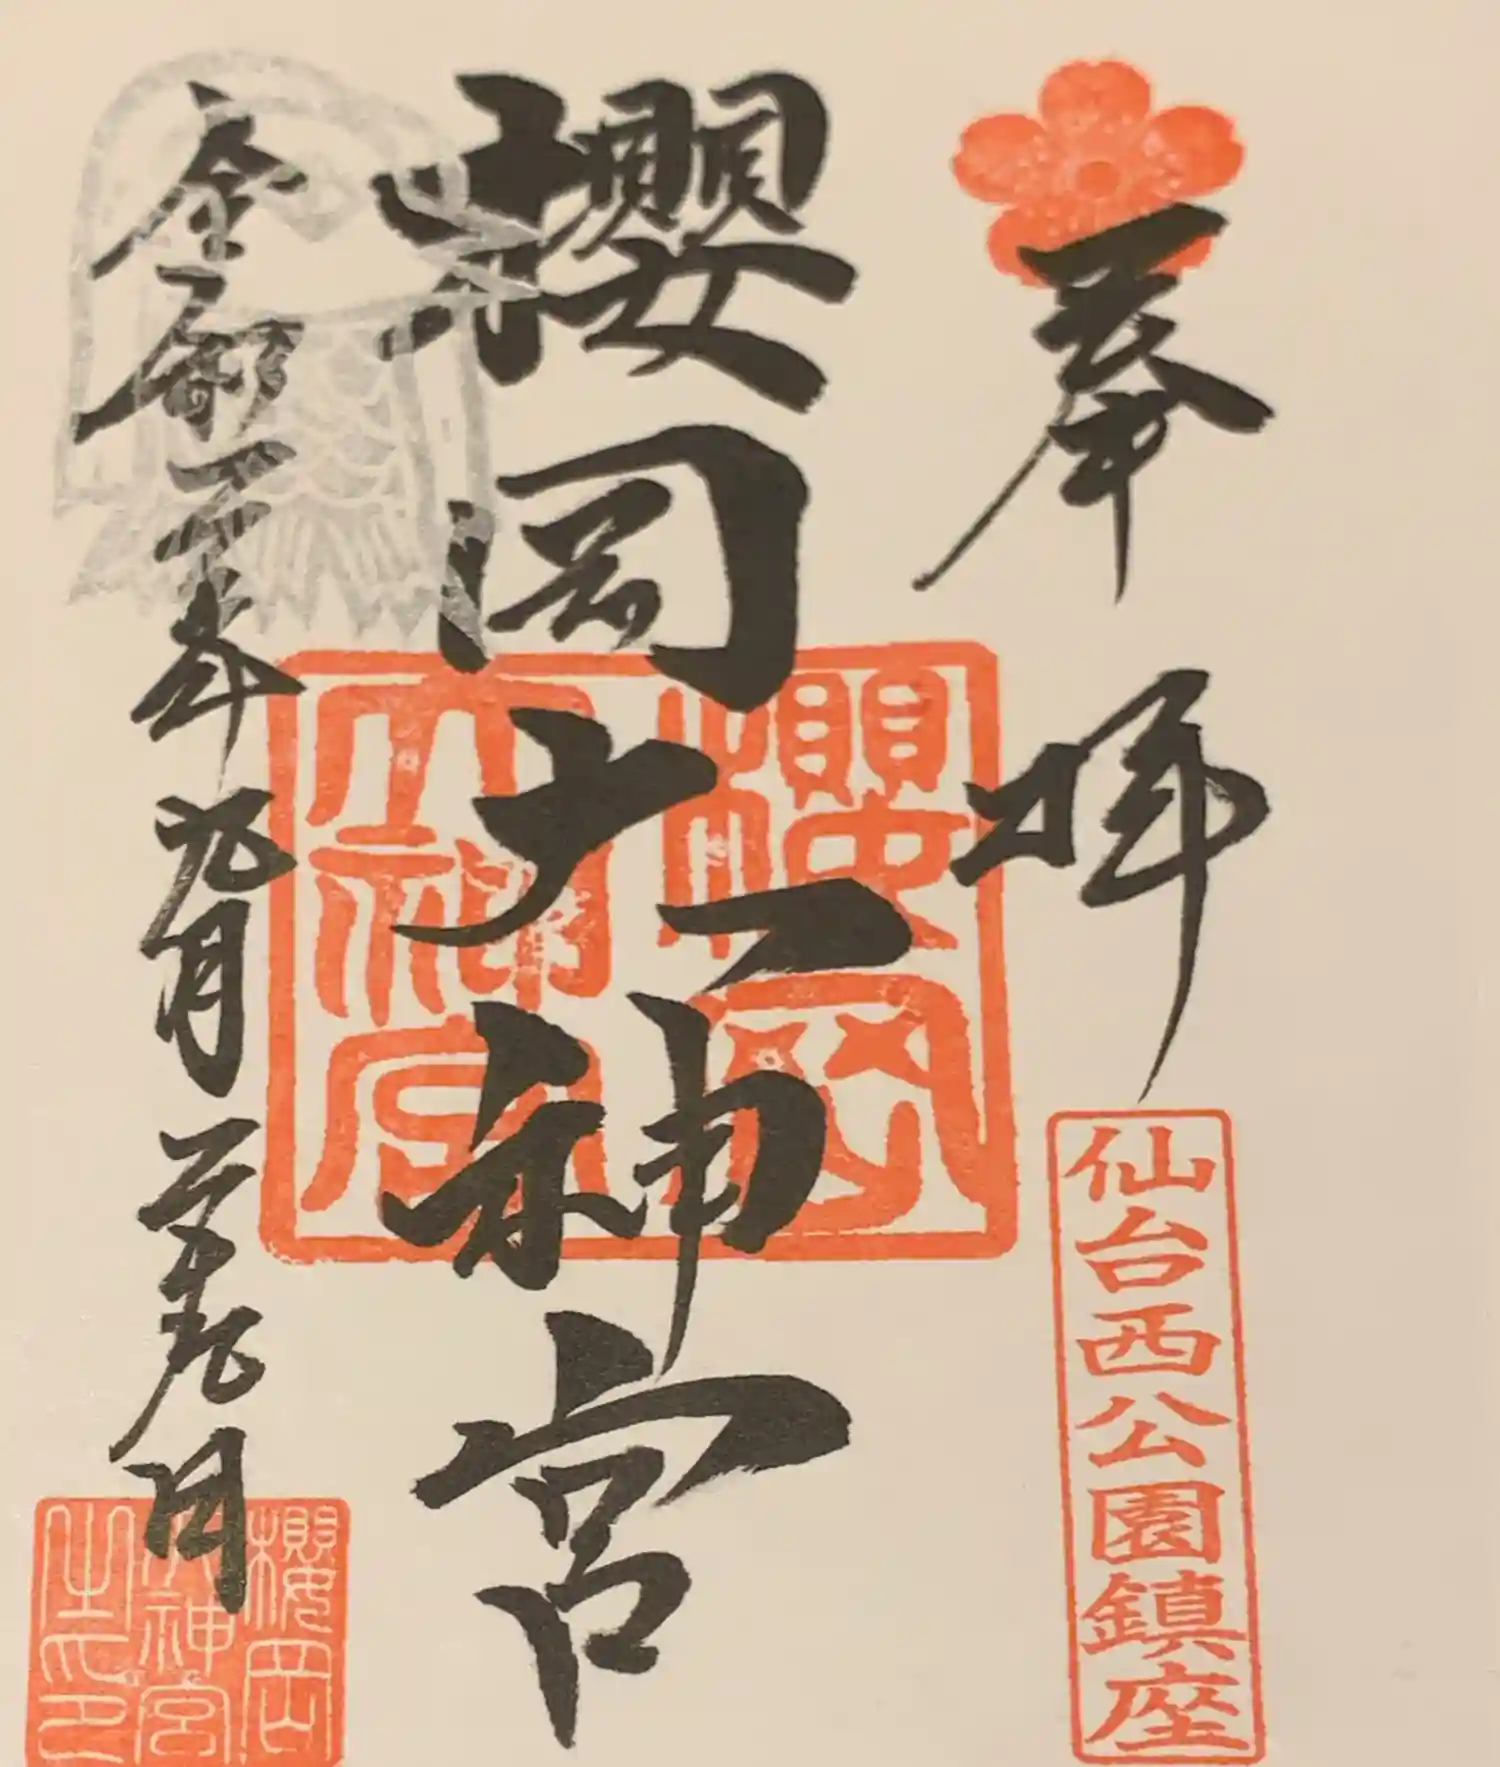 奉拝
仙台西公園鎮座
櫻岡大神宮
櫻岡
大神宮
令和二年九月二十九日
櫻岡
大神宮
之印